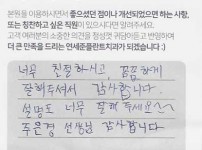 본원을 이용하시면서 좋으셨던 점이나 개선되었으면 하는 사항,
또는 칭찬하고 싶은 직원이 있으시다면 알려주세요.
고객 여러분의 소중한 의견을 정성껏 귀담아듣고 반영하여
더 큰 만족을 드리는 연세준플란트치과가 되겠습니다 :)
너무 친절하시고, 꼼꼼하게
잘해주셔서 감사합니다.
설명도 너무 잘 해 주세요~
주은경 선생님 감사합니다